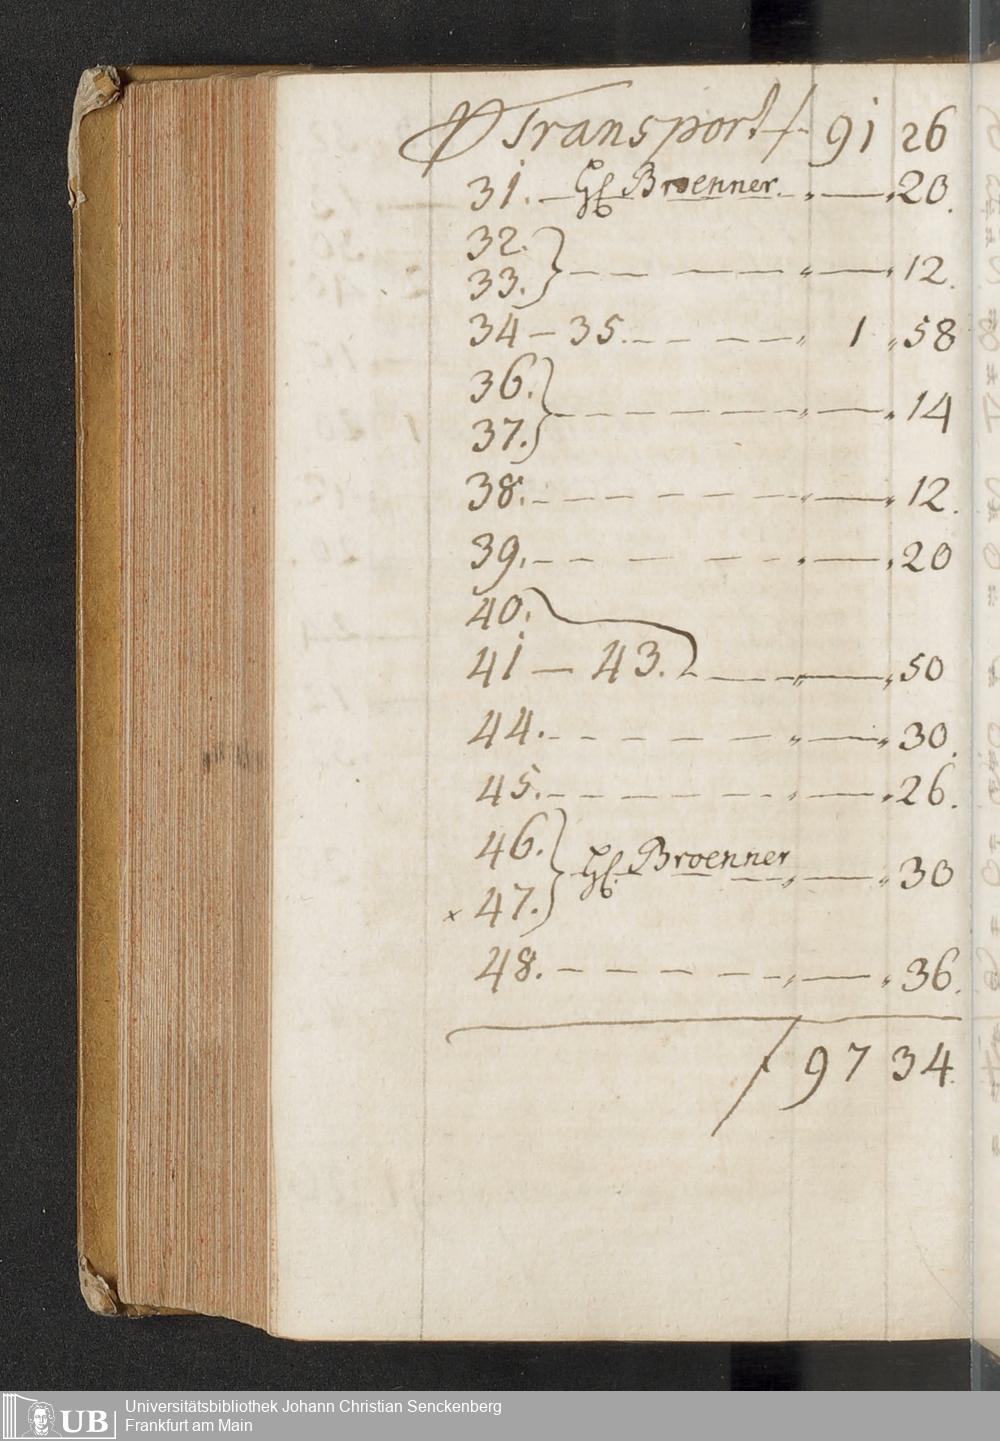 Transport f. 91 26
31. — H. Broenner. - „ — „ 20.
32.
33. } - - - - - „ — „ 12.
34 — 35. - - - - - „ 1 „ 58
36.
37. } - - - - - - - „ — „ 14
38. - - - - - - - „ — „ 12.
39. - - - - - „ — „ 20
40.
41 — 43. } - - - „ — „ 50
44. - - - - - - „ — „ 30.
45. - - - - - - „ — „ 26.
46.
x 47. } H. Broenner - „ — „ 30
48. - - - - - - „ — „ 36.
f 97 34.
UB
Universitätsbibliothek Johann Christian Senckenberg
Frankfurt am Main